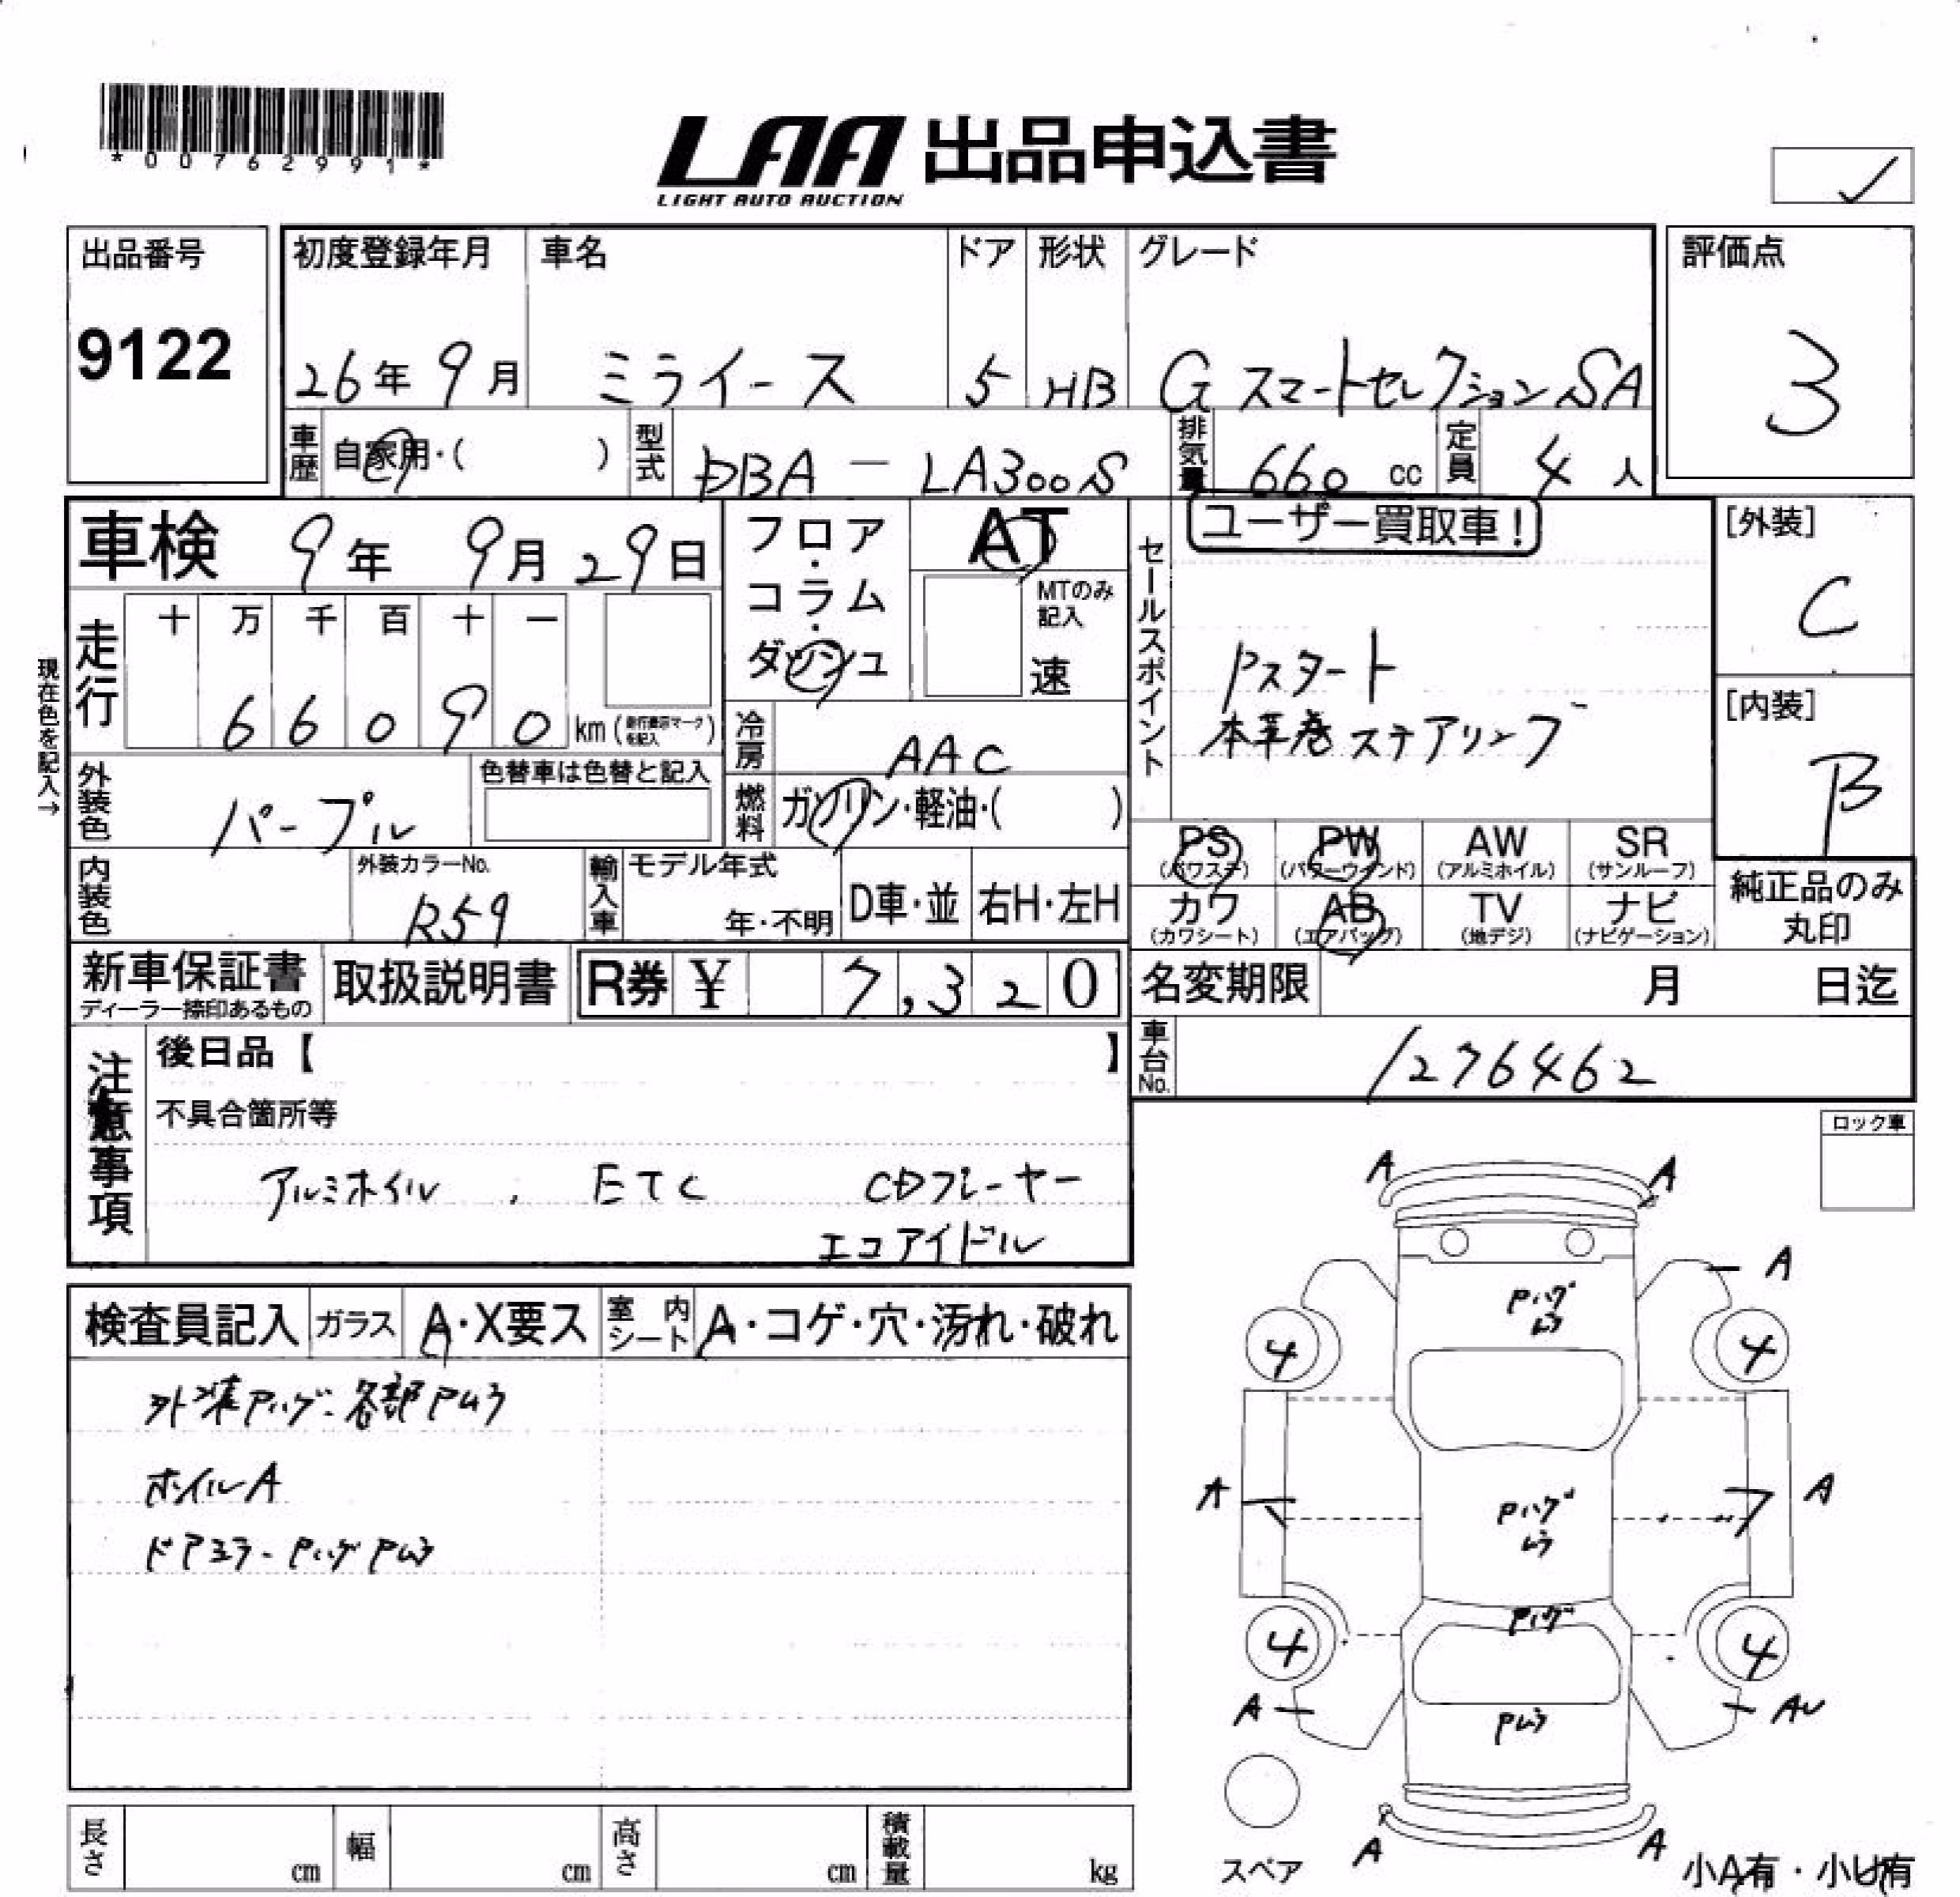 *00762991*
LAA 出品申込書
LIGHT AUTO AUCTION
✓
出品番号
9122
初度登録年月
26年 9月
車名
ミライース
ドア
5
形状
HB
グレード
G スマートセレクションSA
評価点
3
車歴 自家用・( )
型式 DBA - LA300S
排気量 660 cc
定員 4 人
車検 9年 9月 29日
現在色を記入→
走行
十 万 千 百 十 一
6 6 0 9 0 km
フロア・コラム・ダッシュ
AT
MTのみ記入
速
冷房 AAC
燃料 ガソリン・軽油・( )
外装色 パープル
色替車は色替と記入
内装色
外装カラーNo.
R59
輸入車
モデル年式
年・不明
D車・並
右H・左H
セールスポイント
ユーザー買取車!
Pスタート
本革巻ステアリング
[外装]
C
[内装]
B
PS
(パワステ)
PW
(パワーウインド)
AW
(アルミホイル)
SR
(サンルーフ)
カワ
(カワシート)
AB
(エアバッグ)
TV
(地デジ)
ナビ
(ナビゲーション)
純正品のみ
丸印
新車保証書
ディーラー捺印あるもの
取扱説明書
R券 ¥ 7,320
名変期限 月 日迄
車台No. 1276462
注意事項
後日品【 】
不具合箇所等
アルミホイル、 ETC CDプレーヤー
エコアイドル
ロック車
検査員記入
ガラス A・X要ス
室内シート A・コゲ・穴・汚れ・破れ
外装Pハゲ・各部Pムラ
ホイルA
ドアミラーPハゲPムラ
A A
A
Pハゲ
ムラ
4 4
A A
Pハゲ
ムラ
Pハゲ
4 4
A AU
Pムラ
A A
スペア
小A有・小U有
長さ cm
幅 cm
高さ cm
積載量 kg